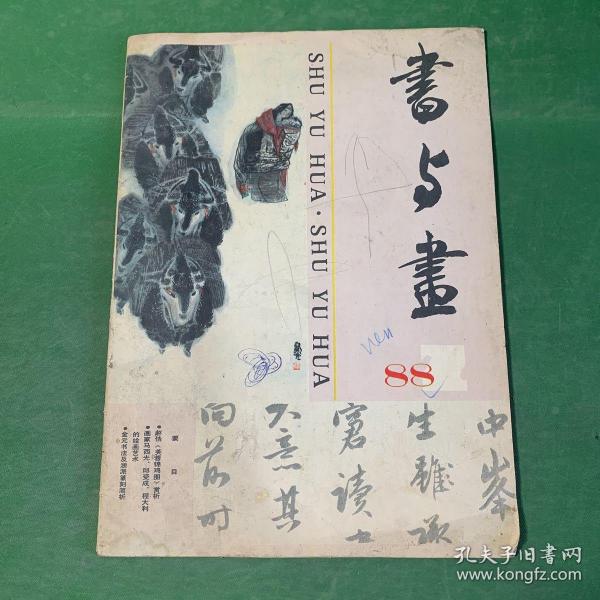 書与畫
SHU YU HUA·SHU YU HUA
nen
88
中峰
生雖
寠读士
不意其
向
要目
●赵佶《芙蓉锦鸡图》赏析
●画家马西光、邱受成、程大利
的绘画艺术
●金元书法及浙派篆刻简析
孔夫子旧书网
www.kongfz.com